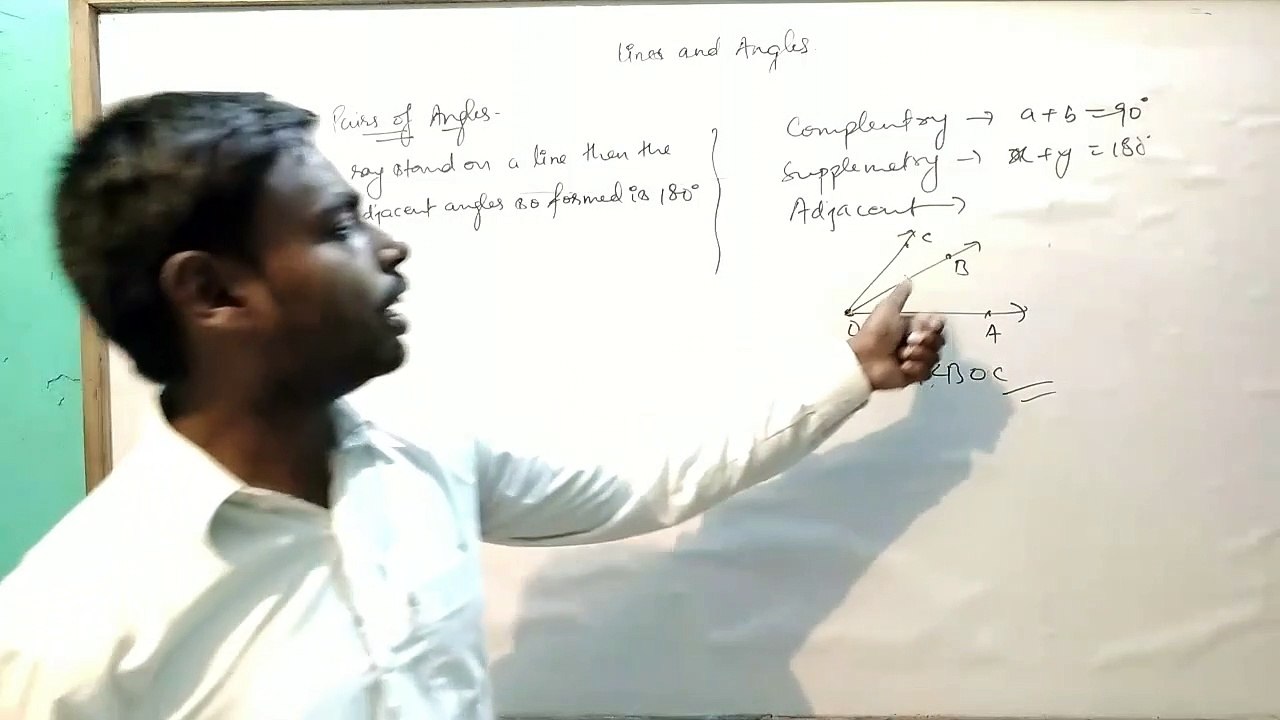 Lines and Angles
Pairs of Angles-
ray stand on a line then the
djacent angles so formed is 180°
Complentry → a+b=90°
Supplemetry → x+y=180°
Adjacent →
C
B
O
A
<BOC